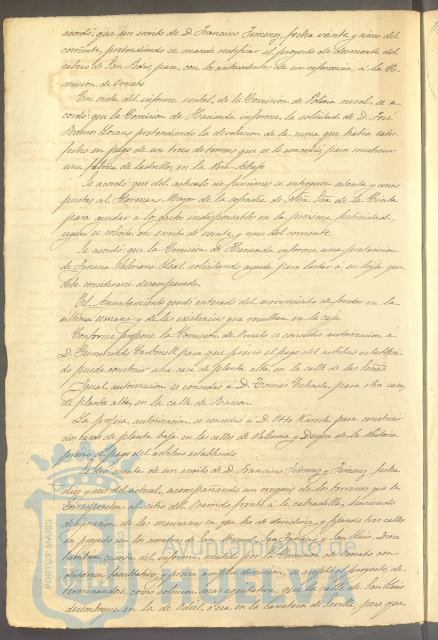 acordó: que un escrito de D. Francisco Jimenez, fecha veinte y cinco del
corriente, pretendiendo se mande notificar el proyecto de desmonte del
cabezo de San Pedro, pase, con los antecedentes de su referencia, á la Co-
mision de Ornato
En vista del informe verbal, de la Comision de Policia rural, se a-
cordó: que la Comision de Hacienda informe la solicitud de D. José
Romero pretendiendo la devolucion de la suma que habia satis-
fecho en pago de un trozo de terreno que se le concedió para construir
una fabrica de ladrillos, en la Vega-Abajo
Se acordó: que del articulo de funciones se entreguen setenta y cinco
pesetas al Hermano Mayor de la cofradia de Ntra Sra de la Cinta
para ayudar á los gastos indispensables en la proxima festividad,
segun se solicita en escrito de veinte y uno del corriente.
Se acordó: que la Comision de Hacienda informe una pretension
de Ignacia Valeriana Leal solicitando ayuda para lactar á su hija que
debe considerarse desamparada.
El Ayuntamiento quedó enterado del movimiento de fondos en la
ultima semana y de las existencias que resultan en la caja
Conforme propone la Comision de Ornato se concedió autorizacion á
D. Carbonell para que previo el pago del arbitrio estableci-
do pueda construir una casa de planta alta en la calle de las
Igual autorizacion se concedió á D. Tomás Estrada, para otra casa,
de planta alta, en la calle de Rascon.
La propia autorizacion se concedió á D. Otto Kunich para construir
dos casas de planta baja en las calles de Valencia y Duque de la Victoria
previo el pago del arbitrio establecido
Se dió cuenta de un escrito de D. Francisco Jimenez y Jimenez, fecha
diez y seis del actual, acompañando un croquis de los terrenos que le
corresponden al sitio del frente á la calzadilla, haciendo
designacion de las manzanas en que ha de dividirse, y fijando tres calles
en proyecto con los nombres de San José, San Ignacio y San Luis. Dióse
tambien cuenta del informe emitido por la Comision de Ornato con
dictamen facultativo, y previa amplia discusion, se aceptó el proyecto de
Hernandez, como solucion mas equitativa, que la calle de San Luis
desemboque en la de Odiel, ó sea en la Carretera de Sevilla, pero que
Ayuntamiento de
HUELVA
PORTUS MARIS